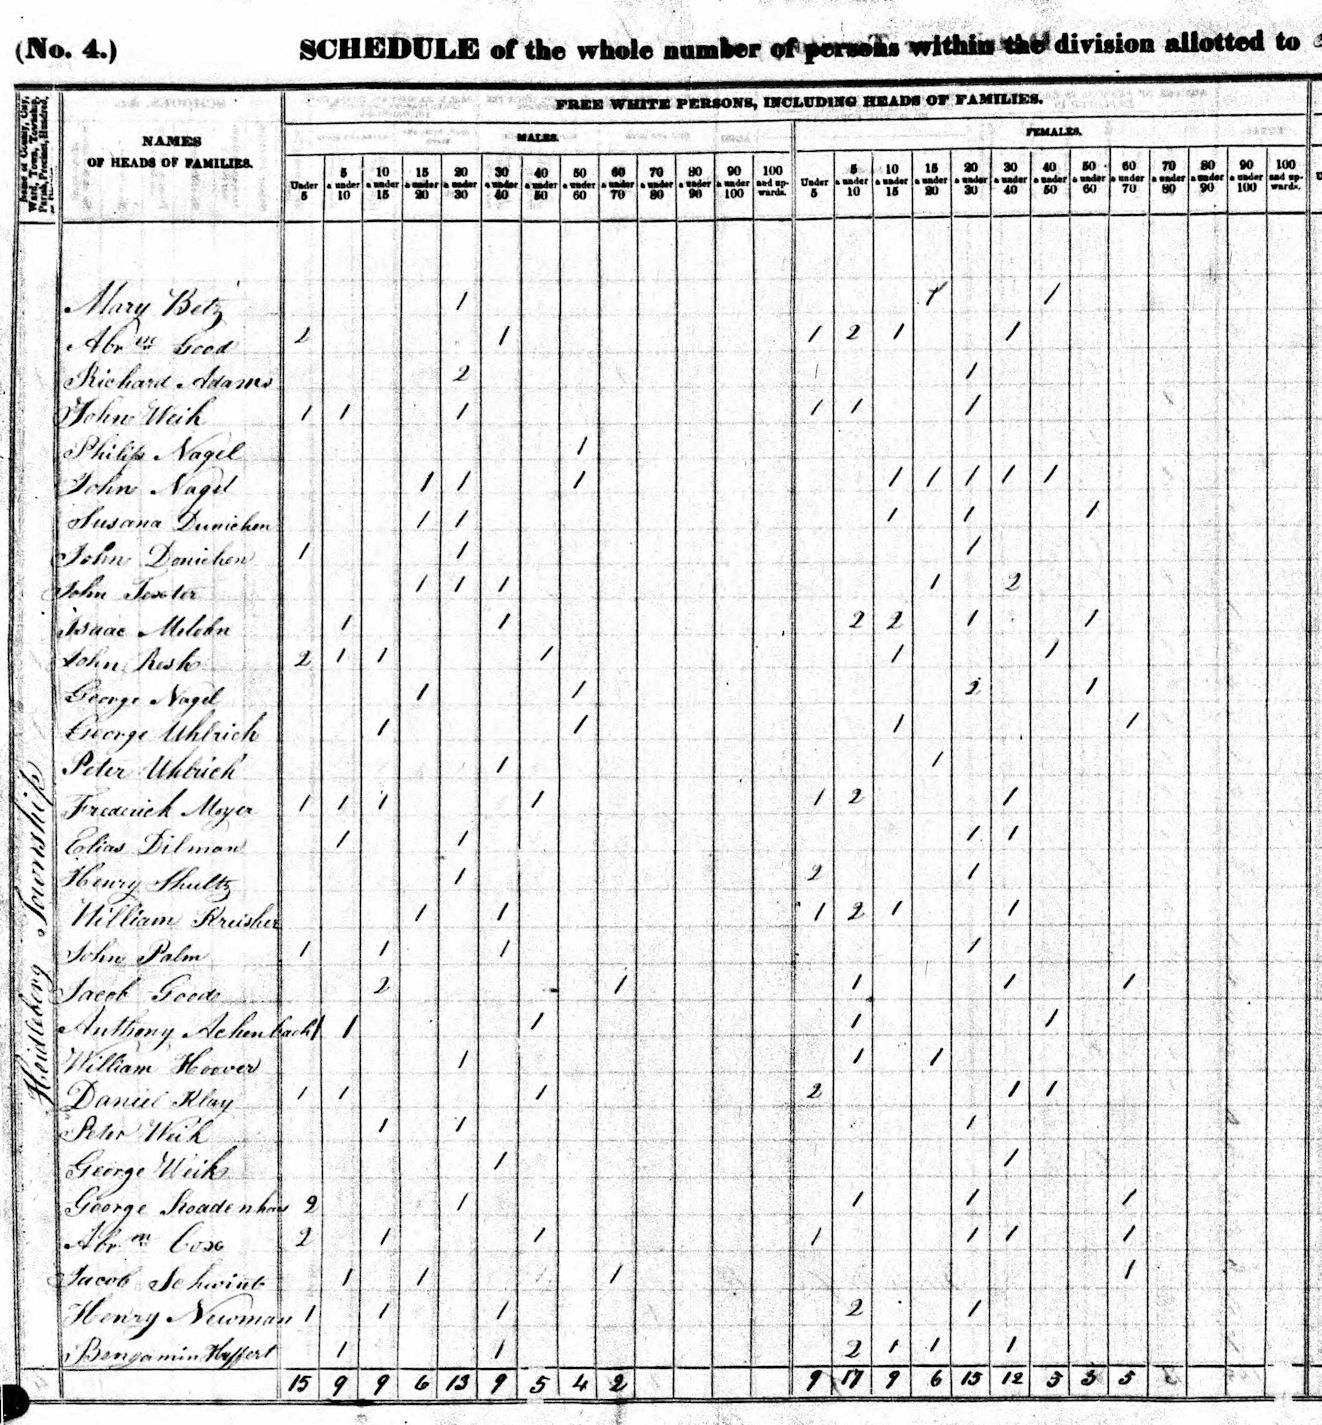 (No. 4.) SCHEDULE of the whole number of persons within the division allotted to
FREE WHITE PERSONS, INCLUDING HEADS OF FAMILIES.
MALES. FEMALES.
Name of County, City, Ward, Town, Township, Parish, Precinct, Hundred,
NAMES
OF HEADS OF FAMILIES.
Under 5 | 5 & under 10 | 10 & under 15 | 15 & under 20 | 20 & under 30 | 30 & under 40 | 40 & under 50 | 50 & under 60 | 60 & under 70 | 70 & under 80 | 80 & under 90 | 90 & under 100 | 100 and upwards. | Under 5 | 5 & under 10 | 10 & under 15 | 15 & under 20 | 20 & under 30 | 30 & under 40 | 40 & under 50 | 50 & under 60 | 60 & under 70 | 70 & under 80 | 80 & under 90 | 90 & under 100 | 100 and upwards.
Heidleberg Township
Mary Betz 1 1 1
Abrm Good 2 1 1 2 1 1
Richard Adams 2 1
John Weik 1 1 1 1 1 1
Philip Nagel 1
John Nagel 1 1 1 1 1 1 1 1
Susana Dunichen 1 1 1 1 1
John Donichen 1 1 1
John Texter 1 1 1 1 2
Isaac 1 1 2 2 1 1
John Resh 2 1 1 1 1 1
George Nagel 1 1 2 1
George Uhlrich 1 1 1 1
Peter Uhlrich 1 1
Frederick Moyer 1 1 1 1 1 2 1
Elias Dilman 1 1 1 1
Henry Shultz 1 2 1
William Kreisher 1 1 1 2 1 1
John Palm 1 1 1 1
Jacob Good 2 1 1 1 1
Anthony Achenbach 1 1 1 1 1
William Hoover 1 1 1
Daniel Klay 1 1 1 2 1 1
Peter Weik 1 1 1
George Weik 1 1
George 2 1 1 1 1
Abrm Cox 2 1 1 1 1 1 1
Jacob Schwint 1 1 1 1
Henry Newman 1 1 1 2 1
Bengamin Huffert 1 1 2 1 1 1
15 9 9 6 13 9 5 4 2 9 17 9 6 15 12 5 5 5